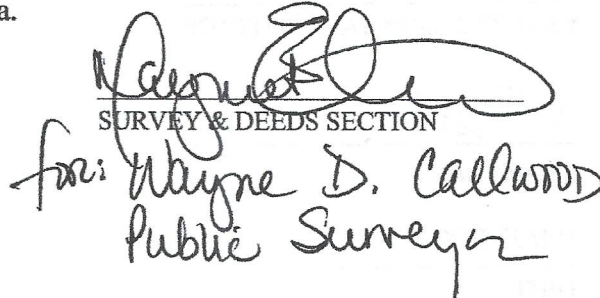 a.
SURVEY & DEEDS SECTION
for: Wayne D. Callwood
Public Surveyor